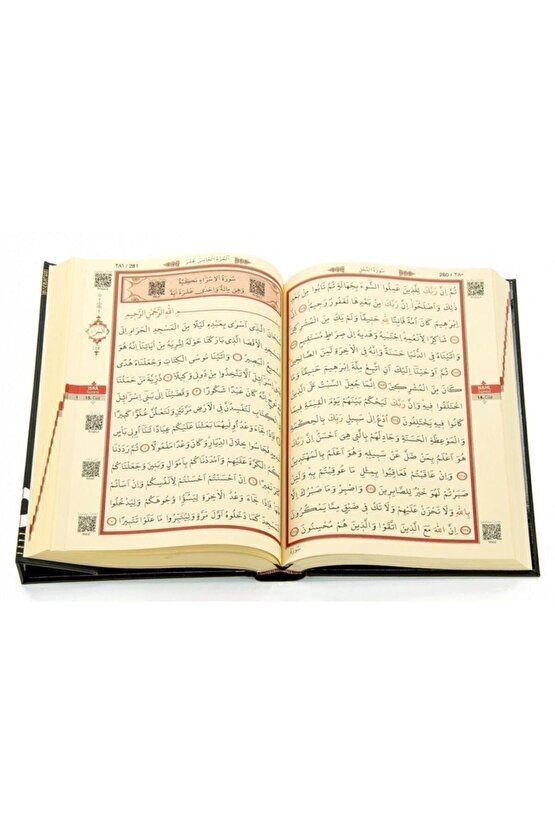 ٢٨٠ / 280
سُورَةُ النَّحْلِ
ثُمَّ اِنَّ رَبَّكَ لِلَّذِينَ عَمِلُوا السُّوءَ بِجَهَالَةٍ ثُمَّ تَابُوا مِنْ بَعْدِ
ذٰلِكَ وَاَصْلَحُوا اِنَّ رَبَّكَ مِنْ بَعْدِهَا لَغَفُورٌ رَحِيمٌ اِنَّ
اِبْرٰهِيمَ كَانَ اُمَّةً قَانِتًا لِلّٰهِ حَنِيفًا وَلَمْ يَكُ مِنَ الْمُشْرِكِينَ
شَاكِرًا لِاَنْعُمِهِ اِجْتَبٰيهُ وَهَدٰيهُ اِلٰى صِرَاطٍ مُسْتَقِيمٍ
وَاٰتَيْنَاهُ فِي الدُّنْيَا حَسَنَةً وَاِنَّهُ فِي الْاٰخِرَةِ لَمِنَ الصَّالِحِينَ
ثُمَّ اَوْحَيْنَا اِلَيْكَ اَنِ اتَّبِعْ مِلَّةَ اِبْرٰهِيمَ حَنِيفًا وَمَا
كَانَ مِنَ الْمُشْرِكِينَ اِنَّمَا جُعِلَ السَّبْتُ عَلَى الَّذِينَ
اخْتَلَفُوا فِيهِ وَاِنَّ رَبَّكَ لَيَحْكُمُ بَيْنَهُمْ يَوْمَ الْقِيٰمَةِ فِيمَا
كَانُوا فِيهِ يَخْتَلِفُونَ اُدْعُ اِلٰى سَبِيلِ رَبِّكَ بِالْحِكْمَةِ
وَالْمَوْعِظَةِ الْحَسَنَةِ وَجَادِلْهُمْ بِالَّتِي هِيَ اَحْسَنُ اِنَّ رَبَّكَ
هُوَ اَعْلَمُ بِمَنْ ضَلَّ عَنْ سَبِيلِهِ وَهُوَ اَعْلَمُ بِالْمُهْتَدِينَ
وَاِنْ عَاقَبْتُمْ فَعَاقِبُوا بِمِثْلِ مَا عُوقِبْتُمْ بِهِ وَلَئِنْ
صَبَرْتُمْ لَهُوَ خَيْرٌ لِلصَّابِرِينَ وَاصْبِرْ وَمَا صَبْرُكَ اِلَّا
بِاللّٰهِ وَلَا تَحْزَنْ عَلَيْهِمْ وَلَا تَكُ فِي ضَيْقٍ مِمَّا يَمْكُرُونَ
اِنَّ اللّٰهَ مَعَ الَّذِينَ اتَّقَوْا وَالَّذِينَ هُمْ مُحْسِنُونَ
سُورَةُ
NAHL
14. Cüz
الْجُزْءُ الْخَامِسُ عَشَرَ
٢٨١ / 281
سُورَةُ الْاِسْرَاءِ مَكِّيَّةٌ
وَهِيَ مِائَةٌ وَاِحْدٰى عَشْرَةَ اٰيَةً
بِسْمِ اللّٰهِ الرَّحْمٰنِ الرَّحِيمِ
سُبْحَانَ الَّذِي اَسْرٰى بِعَبْدِهِ لَيْلًا مِنَ الْمَسْجِدِ الْحَرَامِ اِلَى
الْمَسْجِدِ الْاَقْصَا الَّذِي بَارَكْنَا حَوْلَهُ لِنُرِيَهُ مِنْ اٰيَاتِنَا اِنَّهُ هُوَ
السَّمِيعُ الْبَصِيرُ وَاٰتَيْنَا مُوسَى الْكِتَابَ وَجَعَلْنَاهُ هُدًى
لِبَنِي اِسْرَائِيلَ اَلَّا تَتَّخِذُوا مِنْ دُونِي وَكِيلًا ذُرِّيَّةَ مَنْ حَمَلْنَا
مَعَ نُوحٍ اِنَّهُ كَانَ عَبْدًا شَكُورًا وَقَضَيْنَا اِلٰى بَنِي اِسْرَائِيلَ
فِي الْكِتَابِ لَتُفْسِدُنَّ فِي الْاَرْضِ مَرَّتَيْنِ وَلَتَعْلُنَّ عُلُوًّا كَبِيرًا
فَاِذَا جَاءَ وَعْدُ اُولٰيهُمَا بَعَثْنَا عَلَيْكُمْ عِبَادًا لَنَا اُولِي بَأْسٍ
شَدِيدٍ فَجَاسُوا خِلَالَ الدِّيَارِ وَكَانَ وَعْدًا مَفْعُولًا ثُمَّ رَدَدْنَا
لَكُمُ الْكَرَّةَ عَلَيْهِمْ وَاَمْدَدْنَاكُمْ بِاَمْوَالٍ وَبَنِينَ وَجَعَلْنَاكُمْ
اَكْثَرَ نَفِيرًا اِنْ اَحْسَنْتُمْ اَحْسَنْتُمْ لِاَنْفُسِكُمْ وَاِنْ اَسَأْتُمْ
فَلَهَا فَاِذَا جَاءَ وَعْدُ الْاٰخِرَةِ لِيَسُوؤُا وُجُوهَكُمْ وَلِيَدْخُلُوا
الْمَسْجِدَ كَمَا دَخَلُوهُ اَوَّلَ مَرَّةٍ وَلِيُتَبِّرُوا مَا عَلَوْا تَتْبِيرًا
İSRA
15. Cüz
1